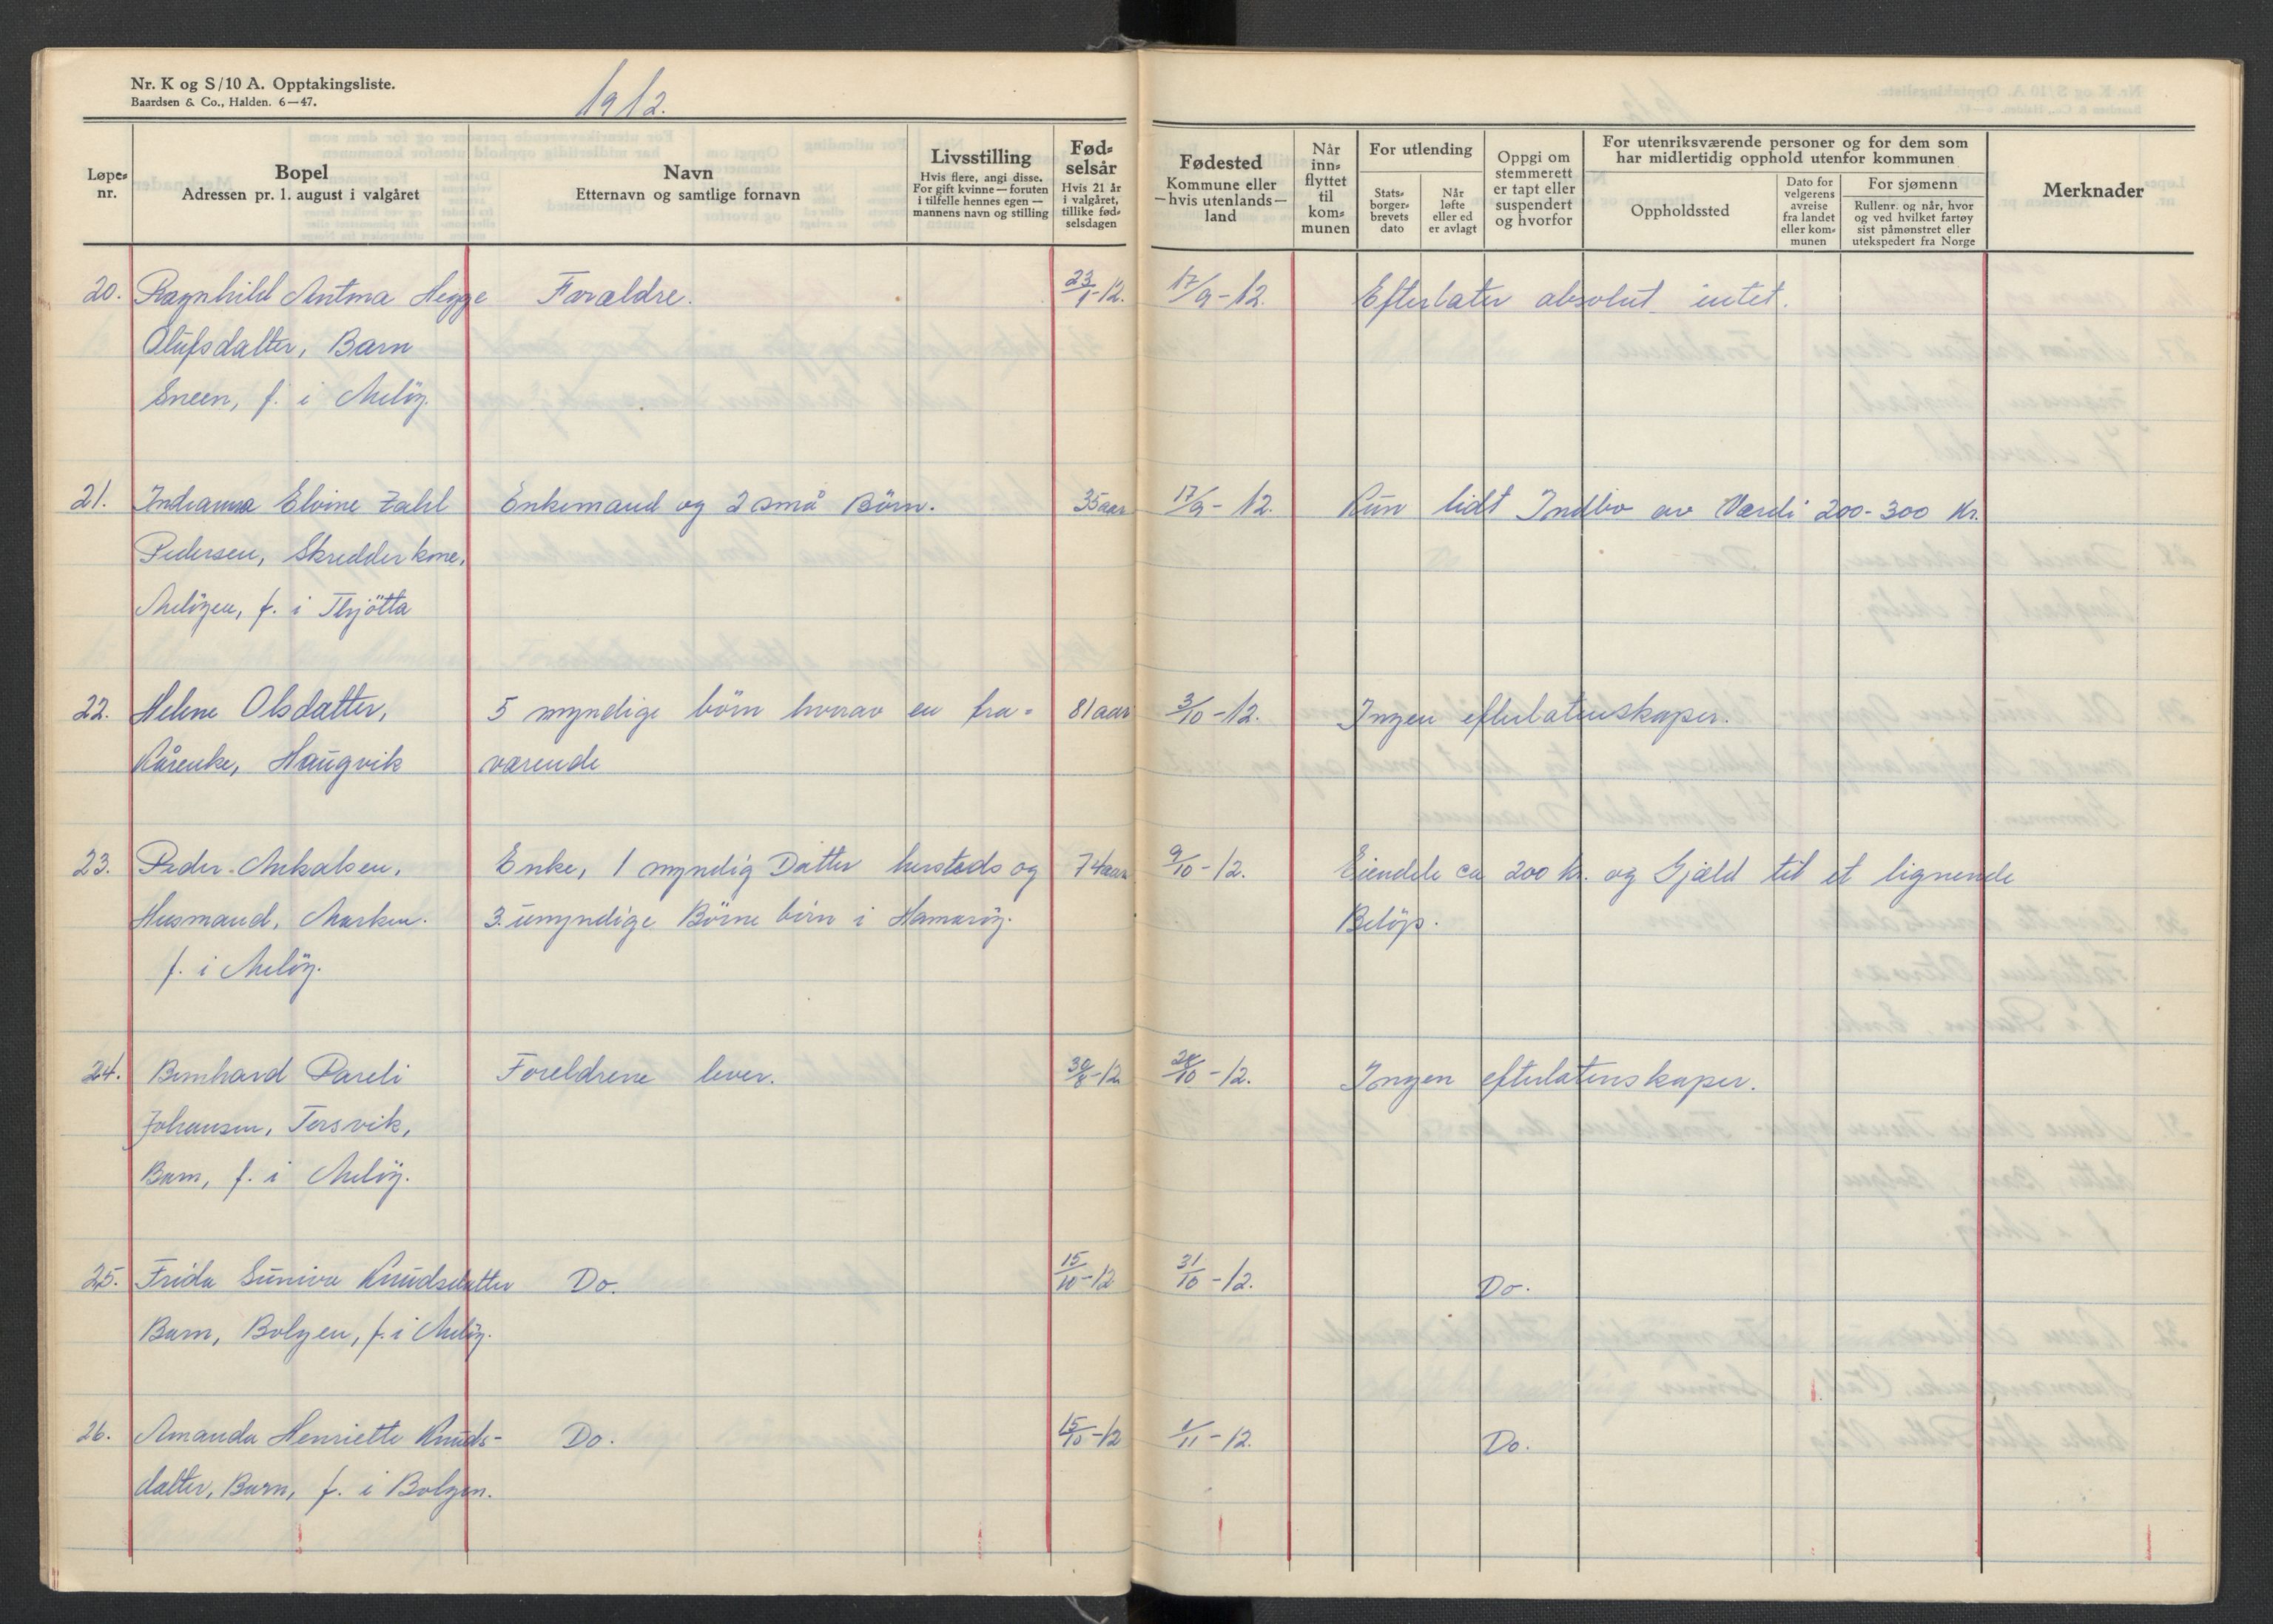 Nr. K og S/10 A. Opptakingsliste.
Baardsen & Co., Halden. 6—47.
1912.
Løpe-
nr.
Bopel
Adressen pr. 1. august i valgåret
Navn
Etternavn og samtlige fornavn
Livsstilling
Hvis flere, angi disse.
For gift kvinne — foruten
i tilfelle hennes egen —
mannens navn og stilling
Fød-
selsår
Hvis 21 år
i valgåret,
tillike fød-
selsdagen
Fødested
Kommune eller
— hvis utenlands —
land
Når
inn-
flyttet
til
kom-
munen
For utlending
Stats-
borger-
brevets
dato
Når
løfte
eller ed
er avlagt
Oppgi om
stemmerett
er tapt eller
suspendert
og hvorfor
For utenriksværende personer og for dem som
har midlertidig opphold utenfor kommunen
Oppholdssted
Dato for
velgerens
avreise
fra landet
eller kom-
munen
For sjømenn
Rullenr. og når, hvor
og ved hvilket fartøy
sist påmønstret eller
utekspedert fra Norge
Merknader
20. Ragnhild Antma Hegge Forældre. 23/1-12. 17/9-12. Efterlater absolut intet.
Olufsdatter, Barn
Sneen, f. i Meløy.
21. Indianna Elvine Zahl Enkemand og 2 små Börn. 35 aar 17/9-12. Kun lidt Indbo av Værdi 200-300 Kr.
Pedersen, Skredderkone,
Meløyen, f. i Thjötta
22. Helene Olsdatter, 5 myndige börn hvorav en fra- 81 aar 3/10-12. Ingen efterlatenskaper.
Kårenke, Haugvik værende
23. Peder Mikalsen, Enke, 1 myndig Datter hersteds og 74 aar 9/10-12. Eiendele ca 200 kr. og Gjæld til et lignende
Husmand, Marken. 3 umyndige Börne börn i Hamaröy. Belöp.
f. i Melöy.
24. Bernhard Pareli Foreldrene lever. 30/8-12 28/10-12. Ingen efterlatenskaper.
Johansen, Torsvik,
Barn, f. i Melöy.
25. Frida Suniva Knudsdatter Do. 15/10-12 31/10-12. Do.
Barn, Bolgen, f. i Melöy.
26. Amanda Henriette Knuds- Do. 15/10-12 1/11-12. Do.
datter, Barn, f. i Bolgen.